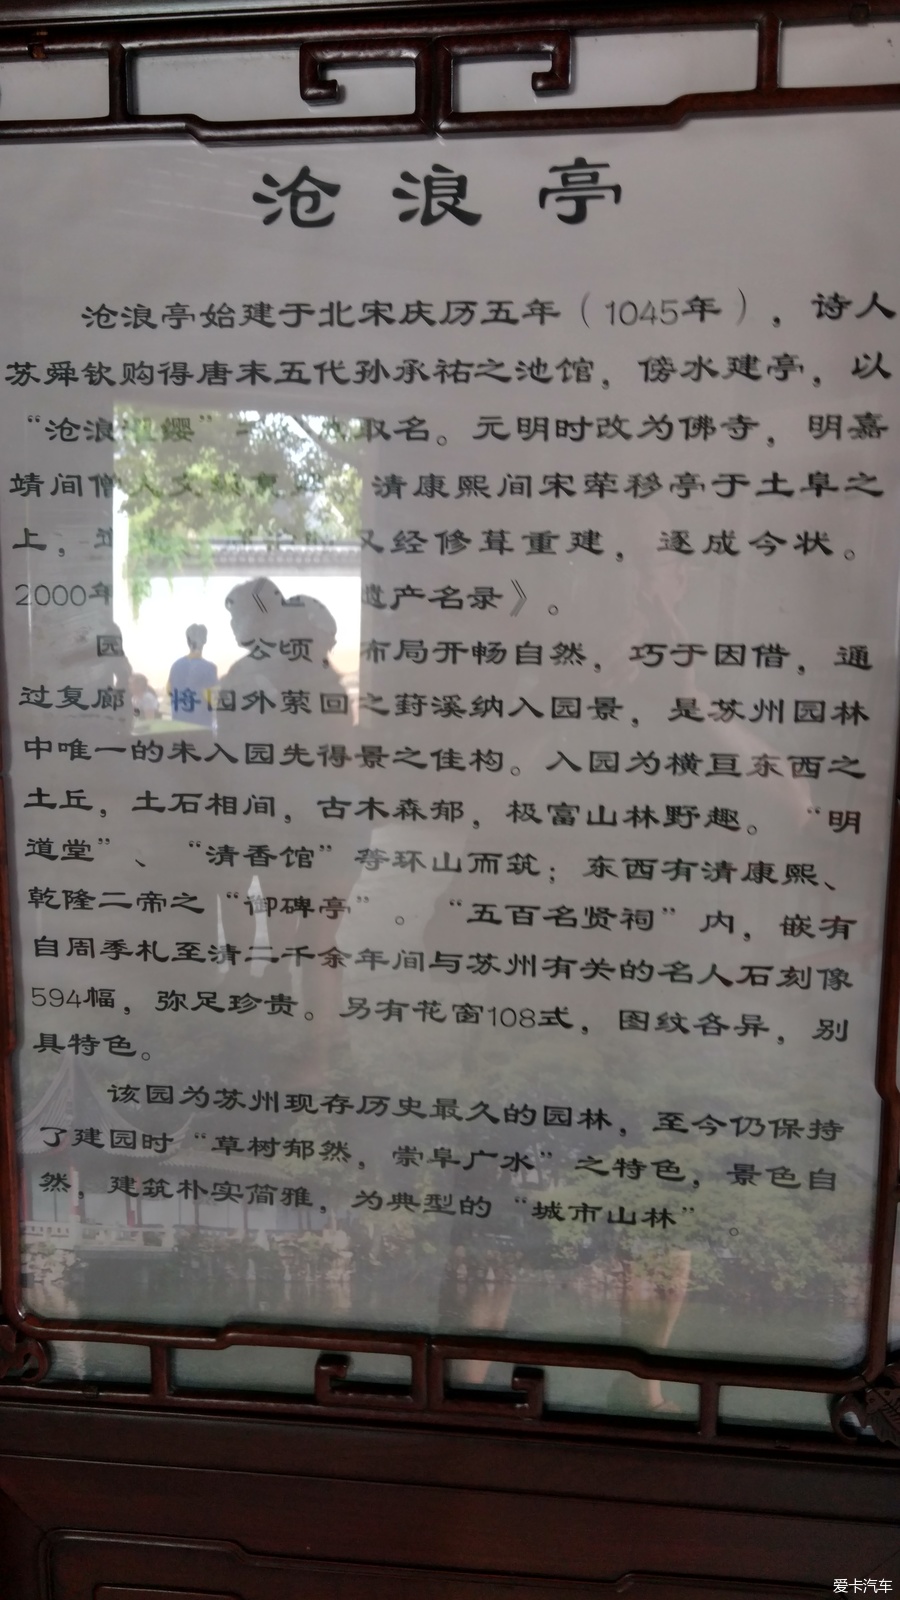 沧浪亭
沧浪亭始建于北宋庆历五年（1045年），诗人
苏舜钦购得唐末五代孙承祐之池馆，傍水建亭，以
“沧浪濯缨”取名。元明时改为佛寺，明嘉
靖间僧人文瑛复清康熙间宋荦移亭于土阜之
上，又经修葺重建，逐成今状。
2000年《世遗产名录》。
园公顷，布局开畅自然，巧于因借，通
过复廊，将园外萦回之葑溪纳入园景，是苏州园林
中唯一的未入园先得景之佳构。入园为横亘东西之
土丘，土石相间，古木森郁，极富山林野趣。“明
道堂”、“清香馆”等环山而筑；东西有清康熙、
乾隆二帝之“御碑亭”。“五百名贤祠”内，嵌有
自周季札至清二千余年间与苏州有关的名人石刻像
594幅，弥足珍贵。另有花窗108式，图纹各异，别
具特色。
该园为苏州现存历史最久的园林，至今仍保持
了建园时“草树郁然，崇阜广水”之特色，景色自
然，建筑朴实简雅，为典型的“城市山林”。
爱卡汽车